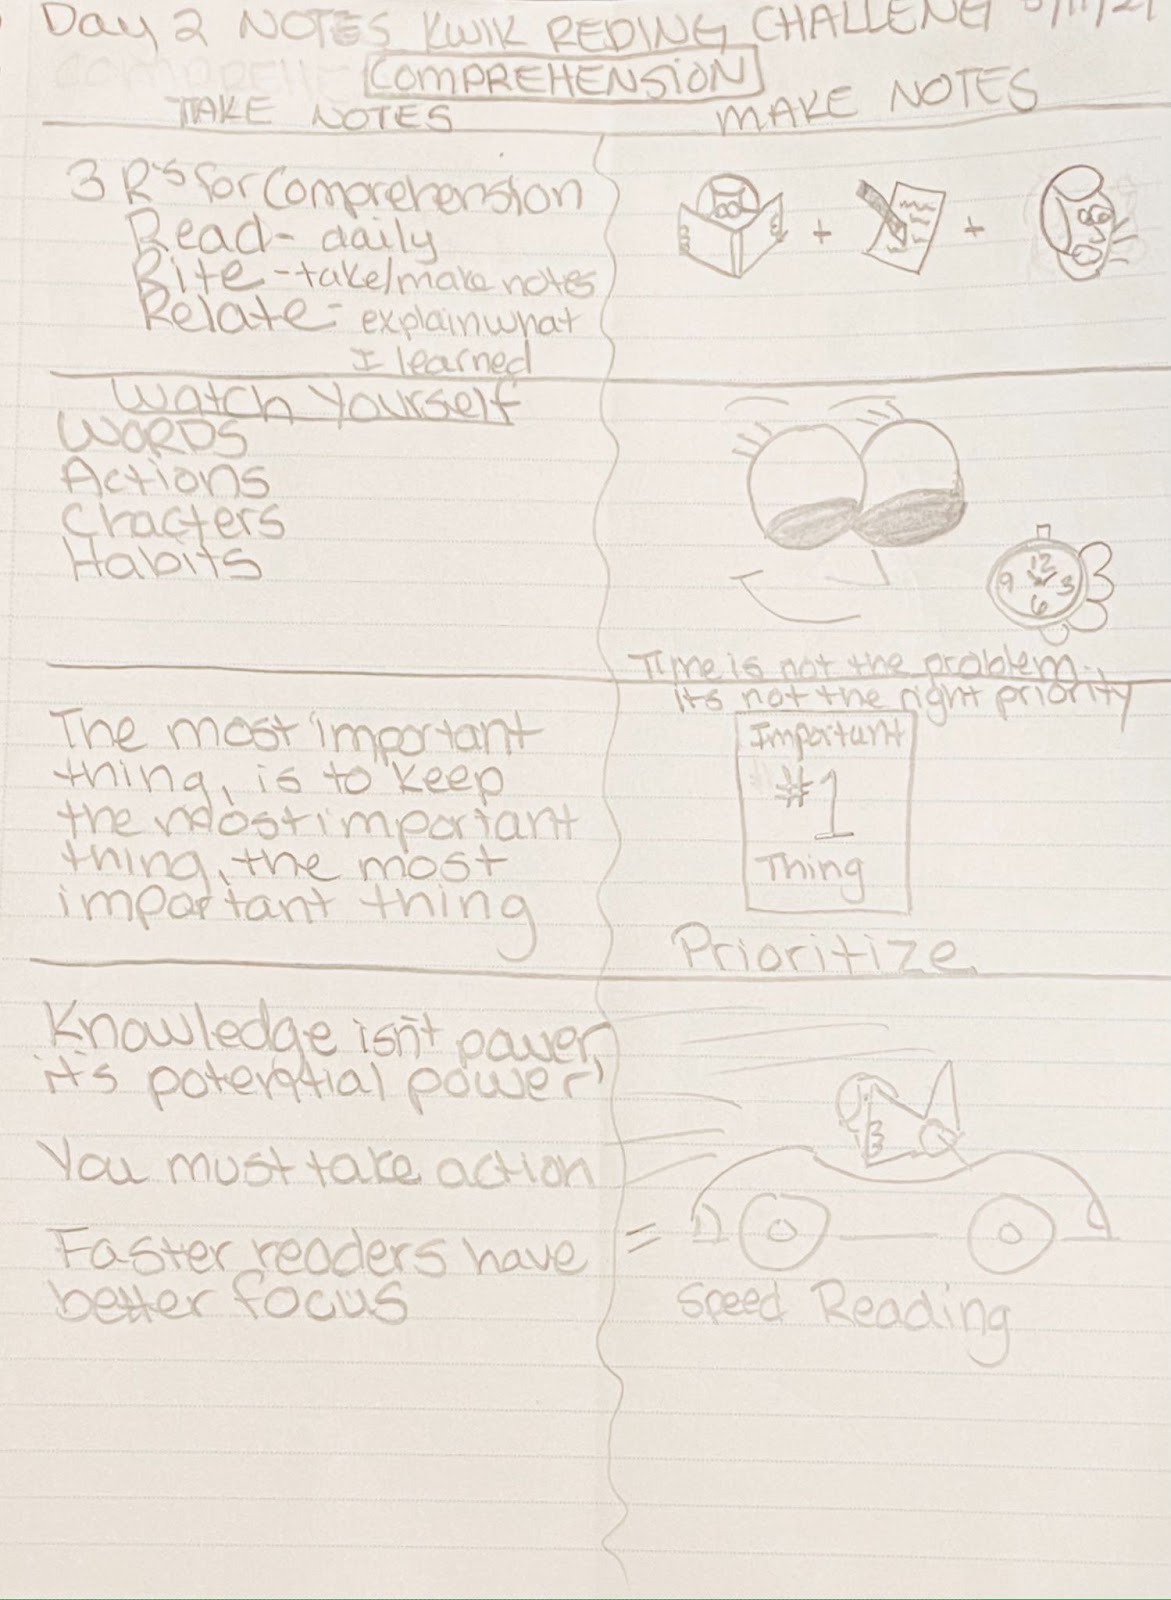 Day 2 NOTES KWIK REDING CHALLENG
COMPREHENSION
TAKE NOTES
MAKE NOTES
3 R's for Comprehension
Read - daily
Rite - take/make notes
Relate - explain what
I learned
+ +
Watch Yourself
WORDS
Actions
Chacters
Habits
12
9 3
6
Time is not the problem..
its not the right priority
The most important
thing, is to keep
the most important
thing, the most
important thing
Important
#1
Thing
Prioritize
Knowledge isn't power,
it's potential power'
You must take action
Faster readers have
better focus
=
Speed Reading